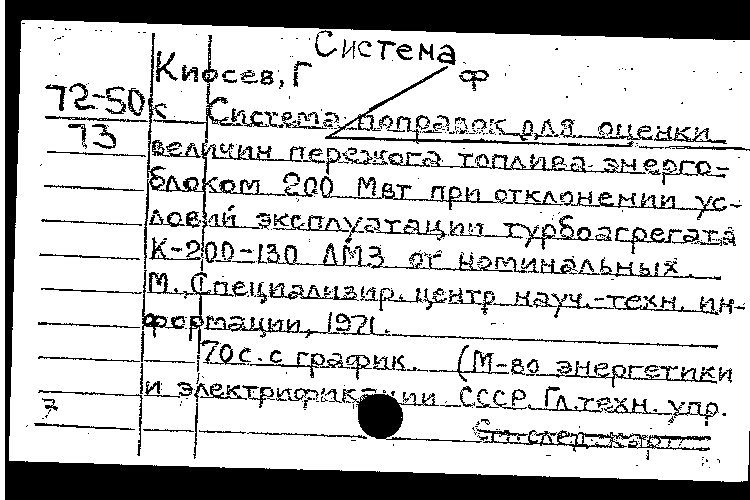 Система
Киосев, Г
ф
72-50 к Система поправок для оценки
73
величин пережога топлива энерго-
блоком 200 Мвт при отклонении ус-
ловий эксплуатации турбоагрегата
К-200-130 ЛМЗ от номинальных.
М., Специализир. центр науч.-техн. ин-
формации, 1971.
70 с. с график. (М-во энергетики
и электрификации СССР. Гл. техн. упр.
7
См. след. карт.